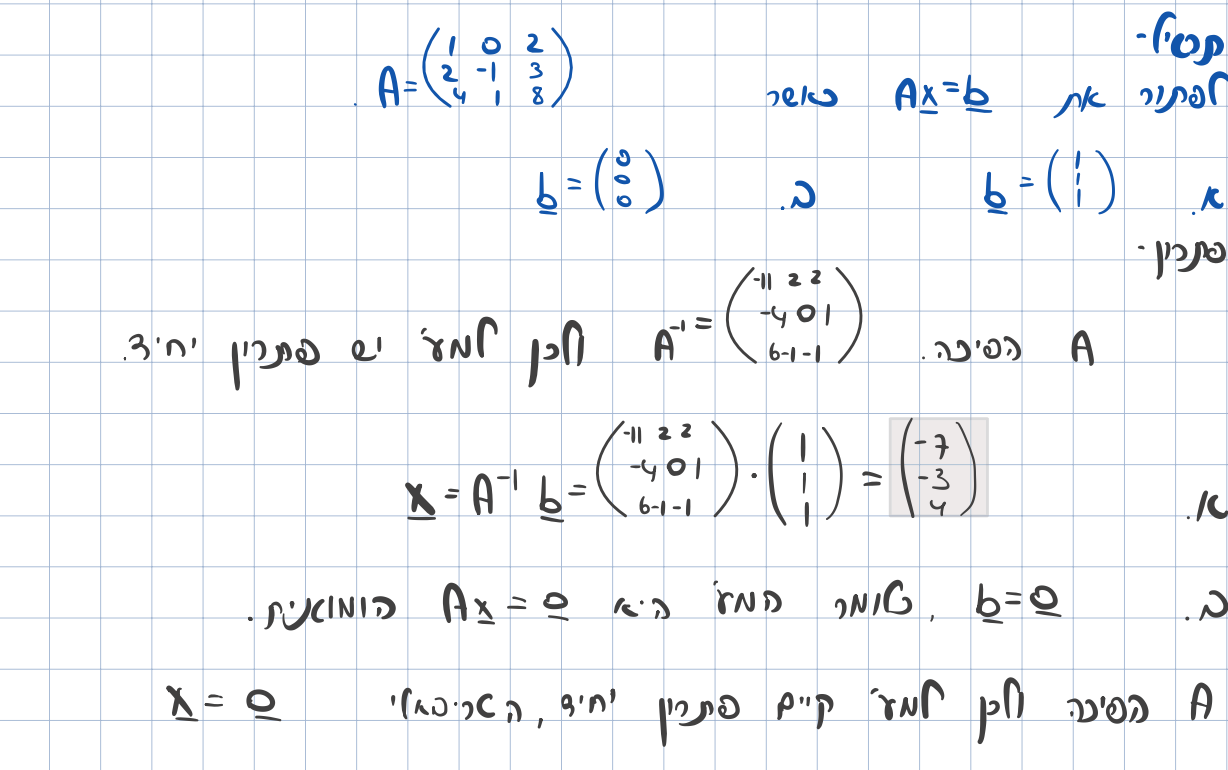 תרגיל-
לפתור את Ax=b כאשר A=(1 0 2; 2 -1 3; 4 1 8).
א. b=(1; 1; 1) ב. b=(0; 0; 0)
פתרון-
A הפיכה. A⁻¹=(-11 2 2; -4 0 1; 6 -1 -1) לכן למע' יש פתרון יחיד.
א. x=A⁻¹ b=(-11 2 2; -4 0 1; 6 -1 -1)·(1; 1; 1)=(-7; -3; 4)
ב. b=0, כלומר המע' היא Ax=0 הומוגנית.
A הפיכה לכן למע' קיים פתרון יחיד, הטריוויאלי x=0